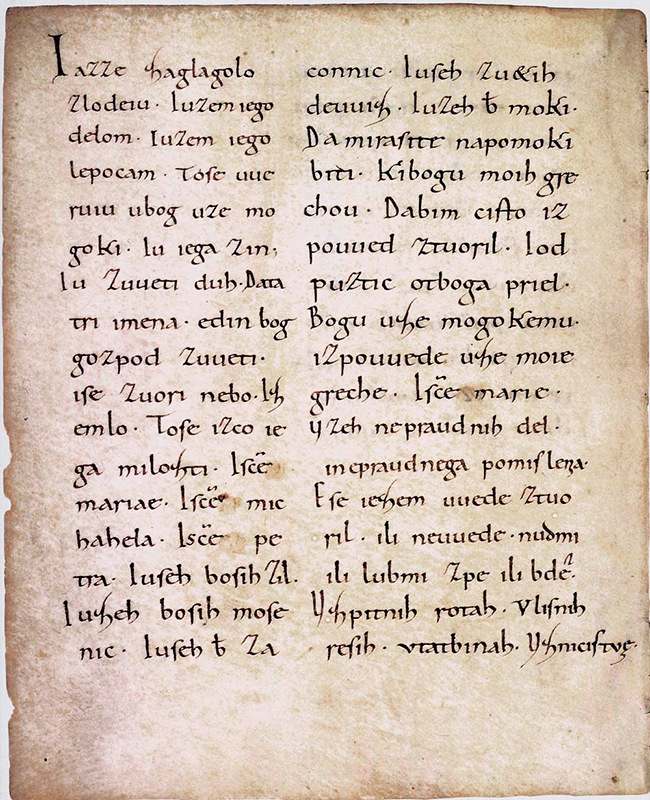 Iazze zaglagolo
zlodeiu. Iuzem iego
delom. Iuzem iego
lepocam. Tose uue
ruiu ubog uze mo
goki. Iu iega zin,
Iu zuueti duh. Data
tri imena. edin bog
gozpod zuueti.
ise zuori nebo. Iz
emlo. Tose izco ie
ga milozti. Iscē
mariae. Iscē mic
hahela. Iscē pe
tra. Iuseh bosih zil.
Iuzeh bosih mose
nic. Iuseh b̄ za
connic. Iuseh zu&ih
deuuiz. Iuzeh b̄ moki.
Da mirasite napomoki
biti. Kibogu moih gre
chou. Dabim cisto iz
pouued ztuoril. Iod
puztic otboga priel.
Bogu uze mogokemu.
izpouuede uze moie
greche. Iscē marie.
Uzeh nepraudnih del.
inepraudnega pomislena.
Ese iezem uuede ztuo
ril. ili neuuede. nudmi
ili lubmi zpe ili bde.
Uzpitnih rotah. Vlisnih
resih. vtatbinah. Uznicistve.